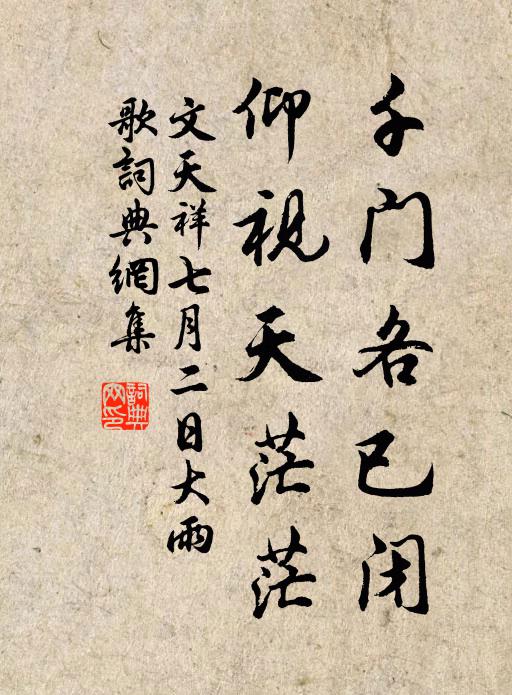 千門各已閉
仰視天茫茫
文天祥七月二日大雨
歌詞典網集
詞典網印